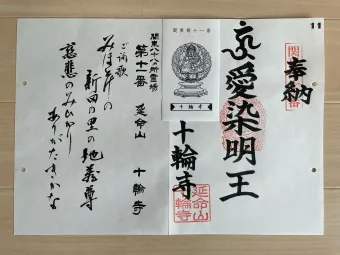 11
奉納
愛染明王
十輪寺
延命山
十輪寺
関東第十一番
十輪寺
関東八十八所霊場
第十一番 延命山 十輪寺
ご詠歌
新田の里の地蔵尊
慈悲のみひかり
ありがたきかな